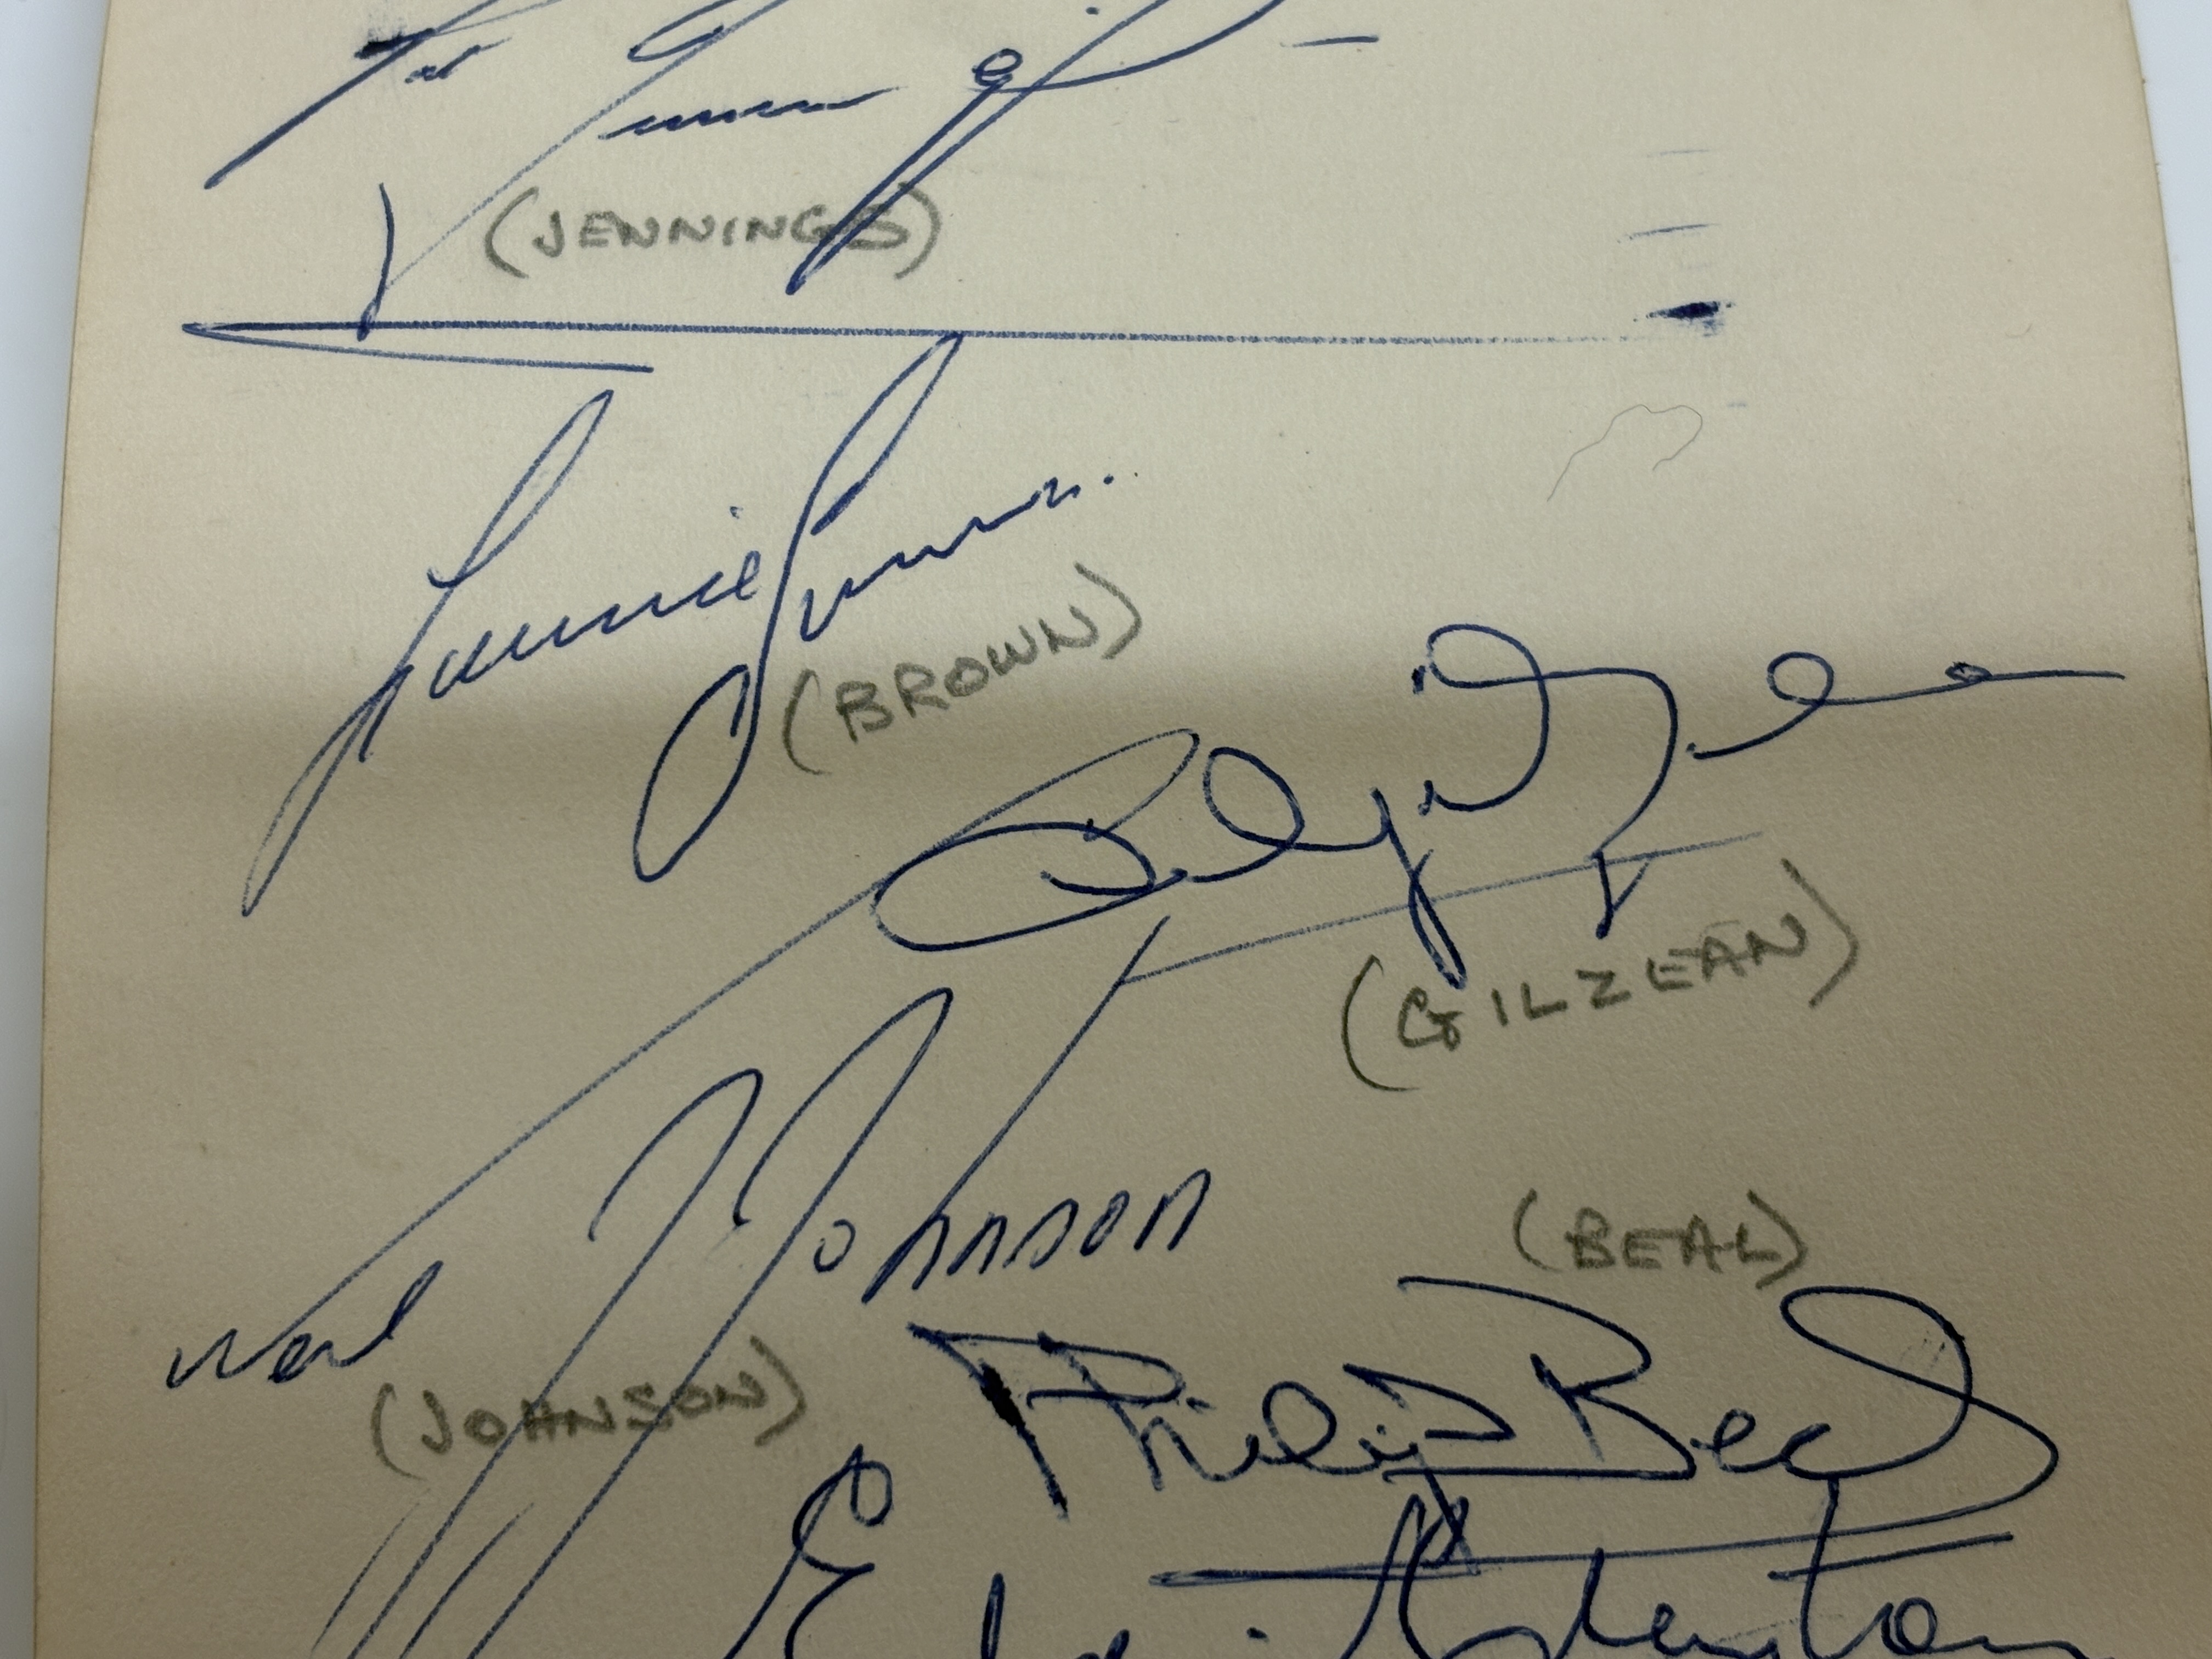 Pat Jennings
(JENNINGS)
Laurie Brown.
(BROWN)
Gilzean
(GILZEAN)
Neil Johnson
(BEAL)
(JOHNSON)
Philip Beal
Eddie Clayton